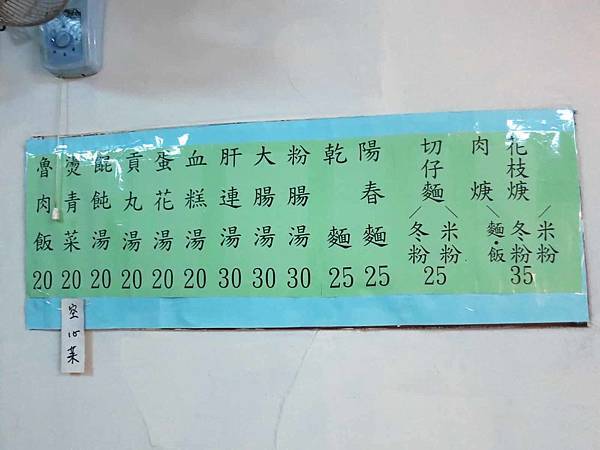 魯肉飯 20
燙青菜 20
餛飩湯 20
貢丸湯 20
蛋花湯 20
血糕湯 20
肝連湯 30
大腸湯 30
粉腸湯 30
乾麵 25
陽春麵 25
切仔麵/冬粉/米粉 25
肉焿
花枝焿/麵•飯/冬粉/米粉 35
空心菜